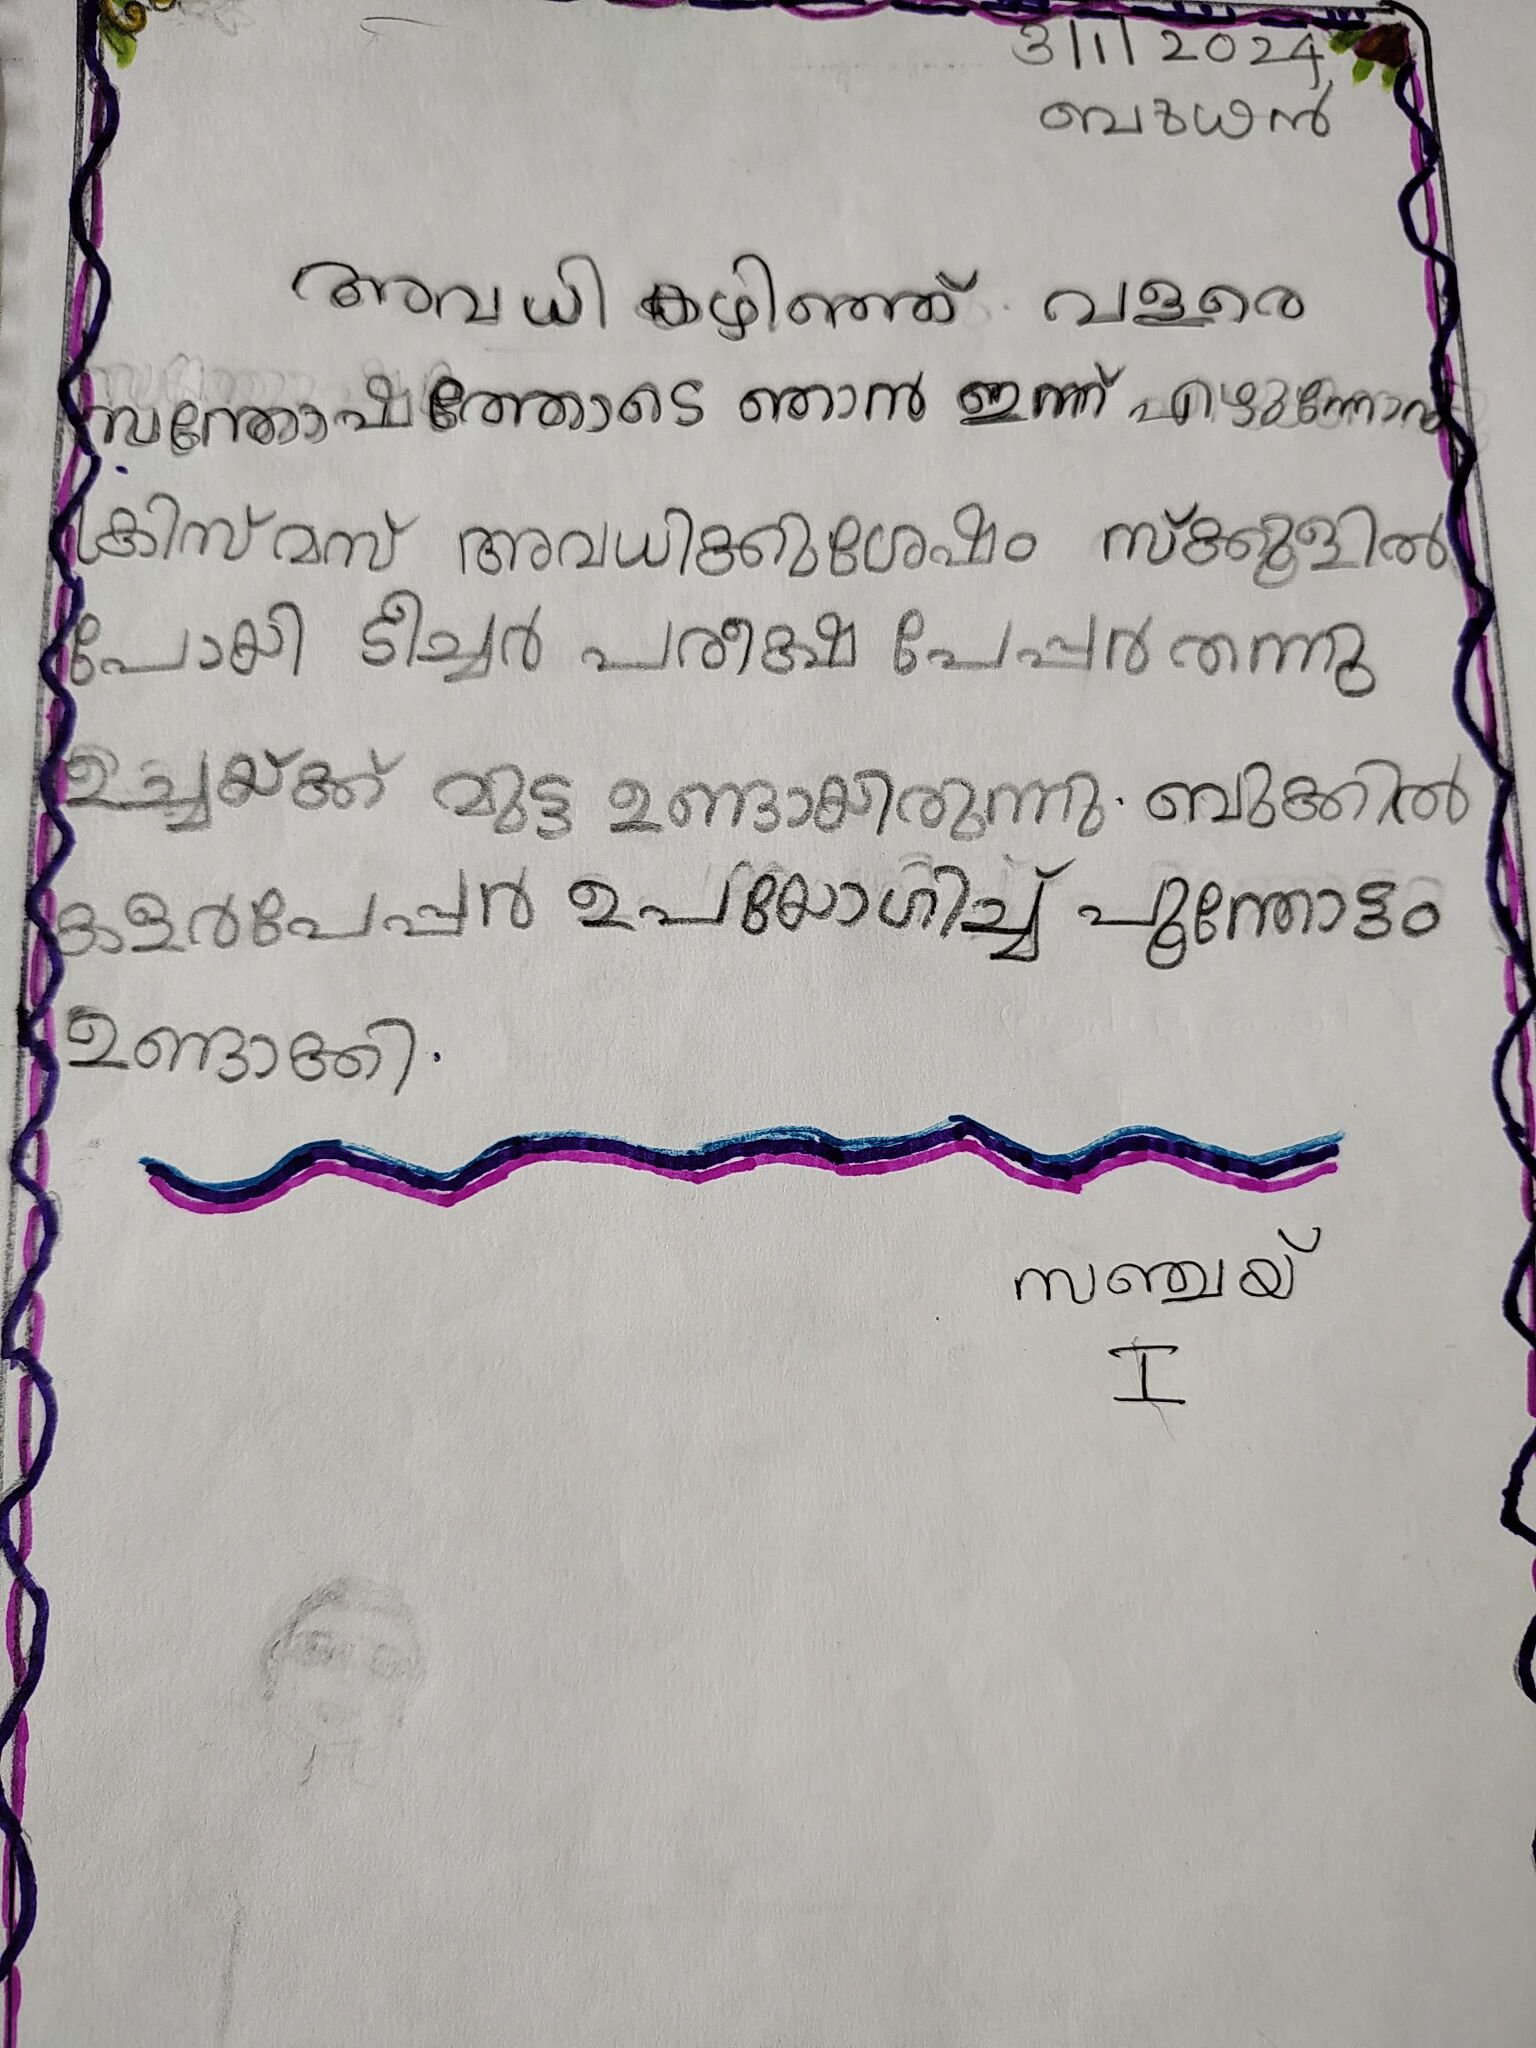 3/1/2024
ബുധൻ
അവധി കഴിഞ്ഞ് വളരെ
സന്തോഷത്തോടെ ഞാൻ ഇന്ന്
ക്രിസ്മസ് അവധിക്കുശേഷം സ്ക്കൂളിൽ
പോയി ടീച്ചർ പരീക്ഷ പേപ്പർ തന്നു
ഉച്ചയ്ക്ക് മുട്ട ഉണ്ടായിരുന്നു. ബുക്കിൽ
കളർപേപ്പർ ഉപയോഗിച്ച് പൂന്തോട്ടം
ഉണ്ടാക്കി.
സഞ്ചയ്
I